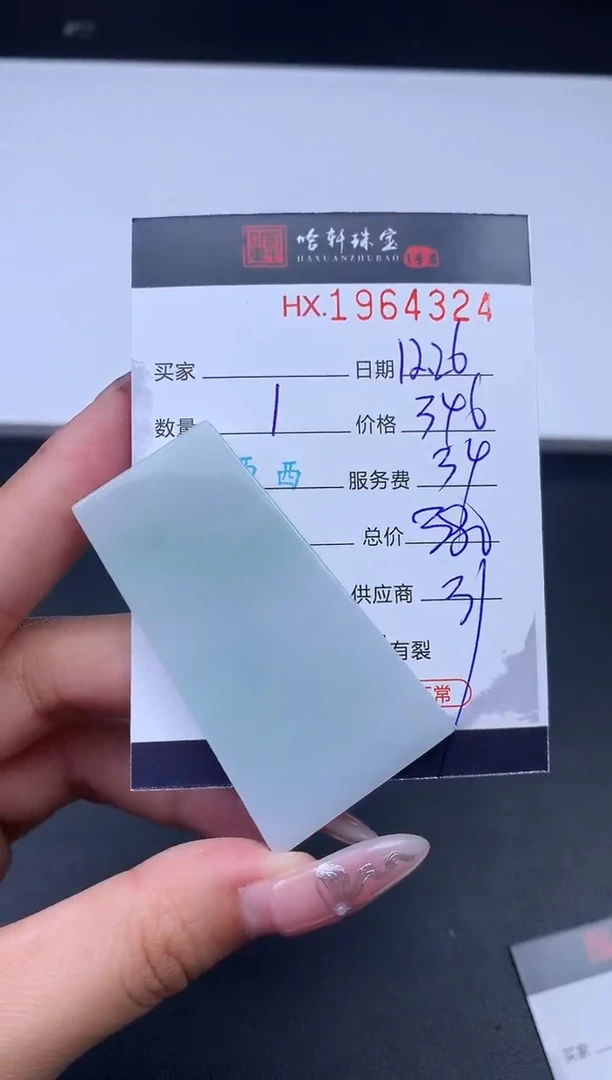 哈轩珠宝
HAXUANZHUBAO
HX.1964324
买家 日期 12.26
数量 1 价格 346
西 服务费 34
总价 380
供应商 31
有裂
常
买家